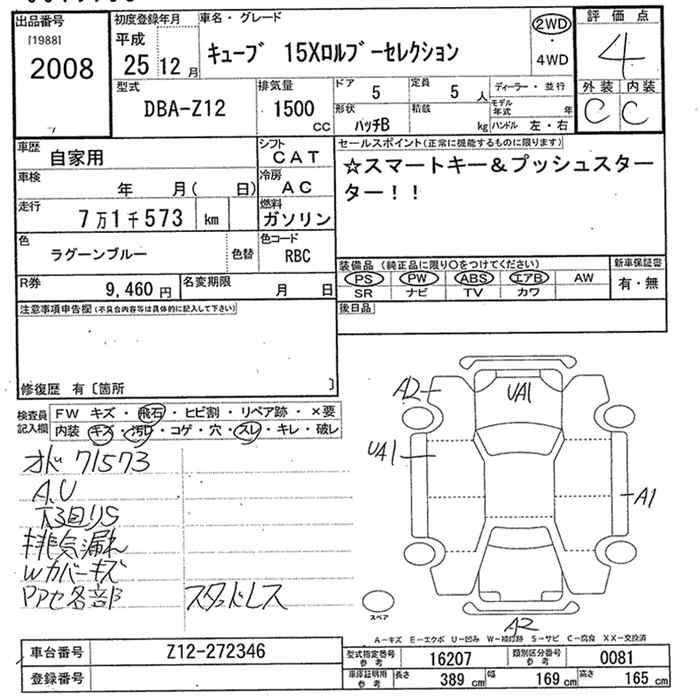 出品番号 初度登録年月 車名・グレード 評価点
[1988] 平成 2WD
2008 25 12月 キューブ 15Xロルブーセレクション ・ 4
4WD
型式 排気量 ドア 5 定員 5人 ディーラー・並行 外装 内装
DBA-Z12 1500 cc 形状 ハッチB 積載 kg モデル年式 年 C C
ハンドル 左・右
車歴 自家用 シフト CAT セールスポイント(正常に機能するものに限ります)
車検 年 月( 日) 冷房 AC ☆スマートキー&プッシュスター
走行 7万1千573 km 燃料 ガソリン ター!!
色 ラグーンブルー 色替 色コード RBC
装備品(純正品に限り○をつけてください) 新車保証書
R券 9,460円 名変期限 月 日 PS PW ABS エアB AW 有・無
SR ナビ TV カワ
注意事項申告欄(不具合内容等は具体的に記入して下さい) 後日品
修復歴 有〔箇所 〕
検査員記入欄 FW キズ・飛石・ヒビ割・リペア跡・×要
内装 キズ・汚れ・コゲ・穴・スレ・キレ・破レ
A2 UA1
オド 71573 UA1
A.U A1
下回りS
排気漏れ
Wカバーキズ
PPセ各部 スタッドレス
スペア A2
A-キズ E-エクボ U-凹み W-補修跡 S-サビ C-腐食 XX-交換済
車台番号 Z12-272346 型式指定番号 参考 16207 類別区分番号 参考 0081
登録番号 車庫証明用 参考 長さ 389 cm 幅 169 cm 高さ 165 cm